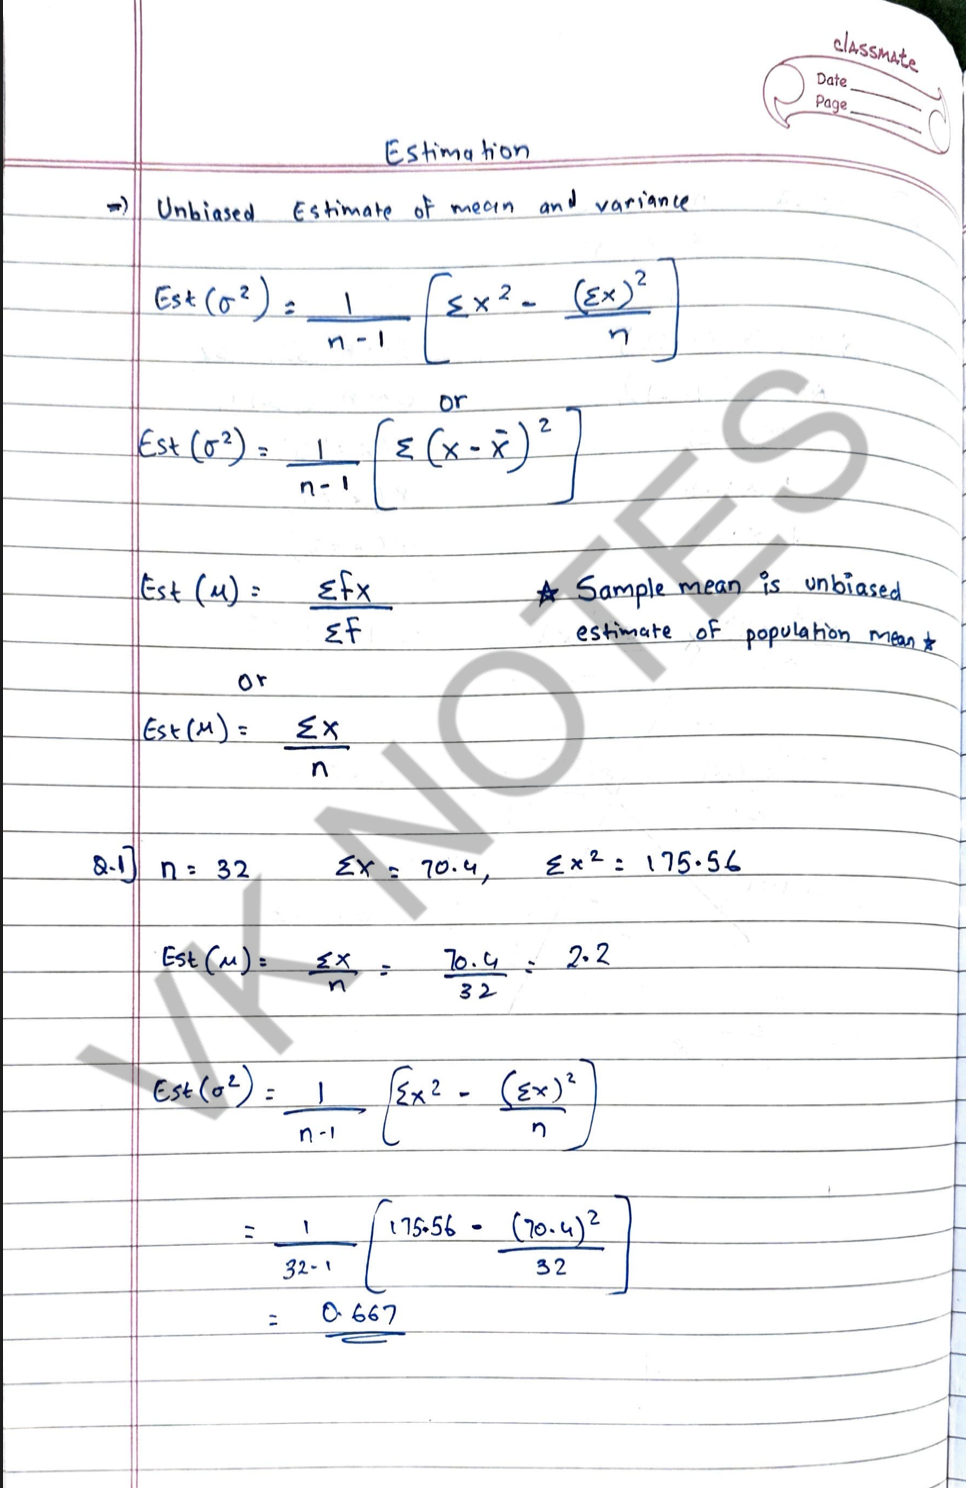 classmate
Date
Page
Estimation
⇒) Unbiased Estimate of mean and variance
Est (σ²) = 1/(n-1) [Σx² - (Σx)²/n]
or
Est (σ²) = 1/(n-1) [Σ(x - x̄)²]
Est (μ) = Σfx/Σf
☆ Sample mean is unbiased
estimate of population mean ☆
or
Est (μ) = Σx/n
Q.1] n = 32 Σx = 70.4, Σx² = 175.56
Est (μ) = Σx/n = 70.4/32 = 2.2
Est (σ²) = 1/(n-1) [Σx² - (Σx)²/n]
= 1/(32-1) [175.56 - (70.4)²/32]
= 0.667
VK NOTES